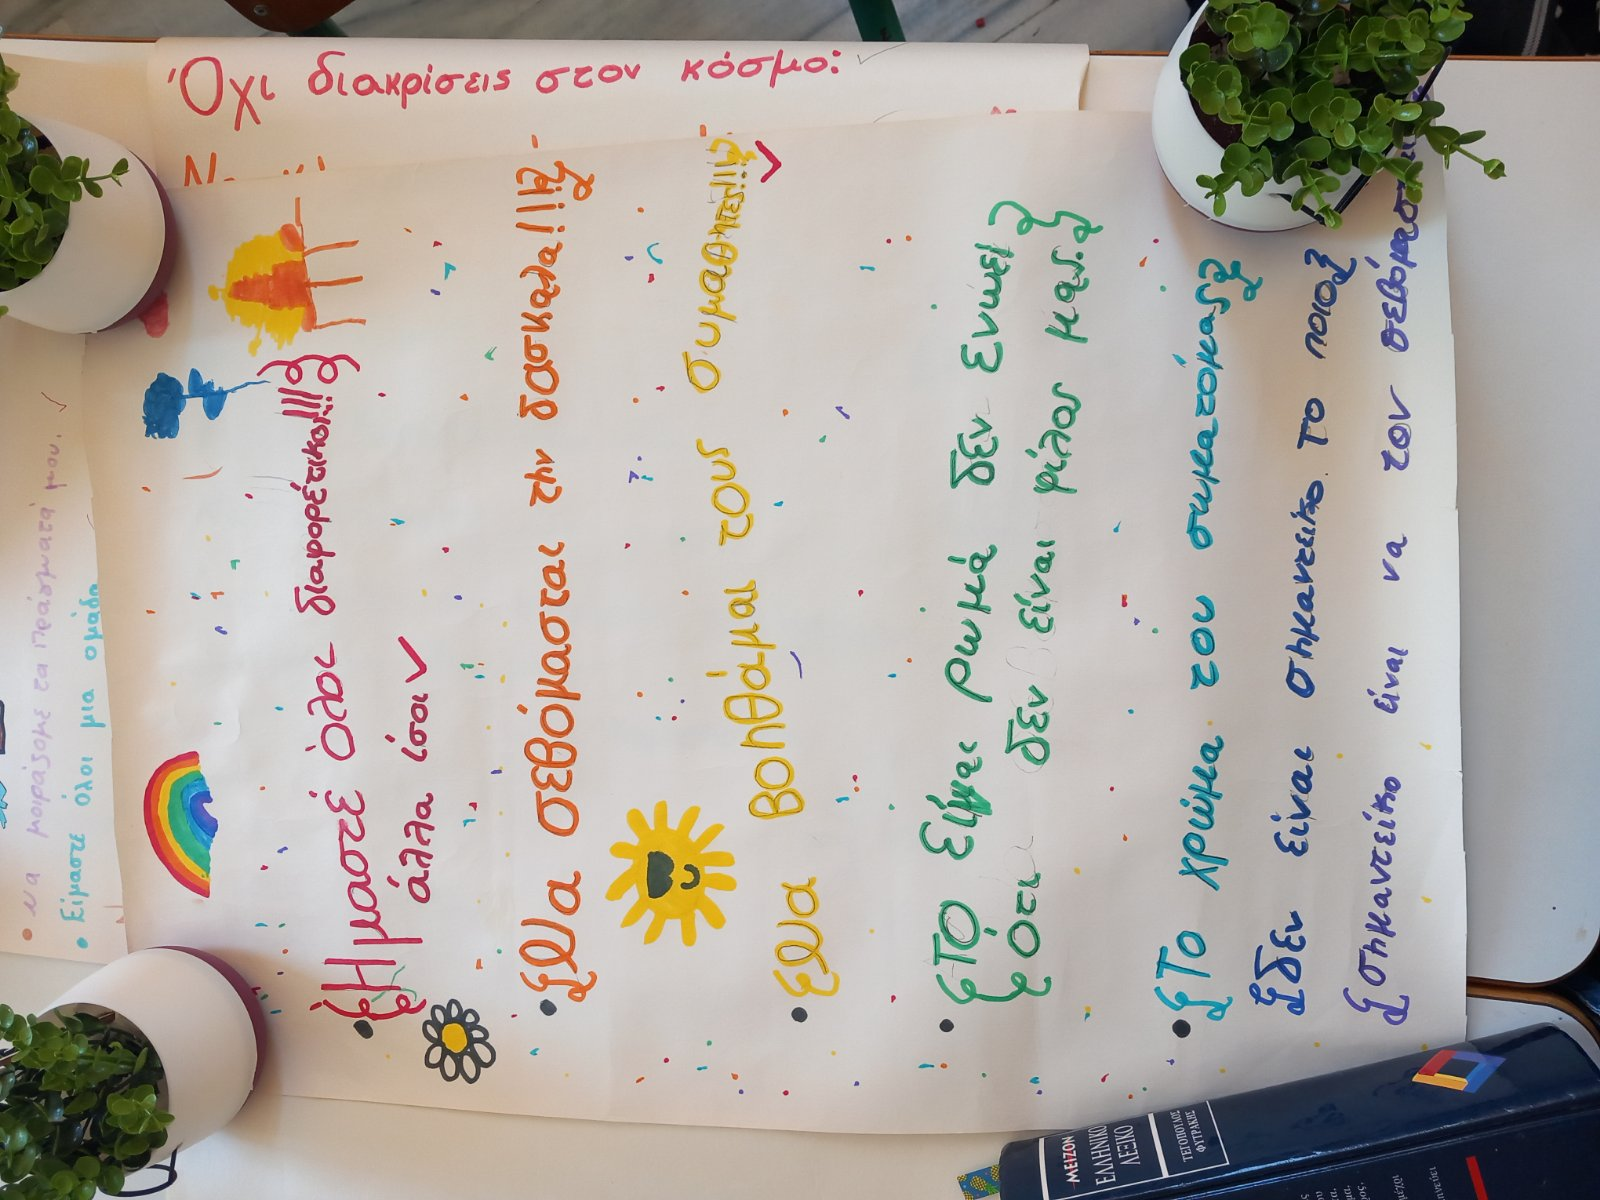 Όχι διακρίσεις στον κόσμο:
να μοιράζομε τα πράσματά μου.
Είμαστε όλοι μια ομάδα
Ήμαστέ όλοι διαφορέτικοι!!!
άλλα ίσοι
Να σεβόμασται την δασκαλα!!!
Να βοηθάμαι τους συμαθητες!!!
Το είμαι ρωμά δεν ενωχεί
ότι δεν είναι φίλος μας.
Το χρώμα του σωματόμας
δεν είναι σημαντεικο. Το ποιο
σημαντείκο είναι να τον
ΜΕΙΖΟΝ
ΕΛΛΗΝΙΚΟ
ΛΕΞΙΚΟ
ΤΕΓΟΠΟΥΛΟΣ
ΦΥΤΡΑΚΗΣ